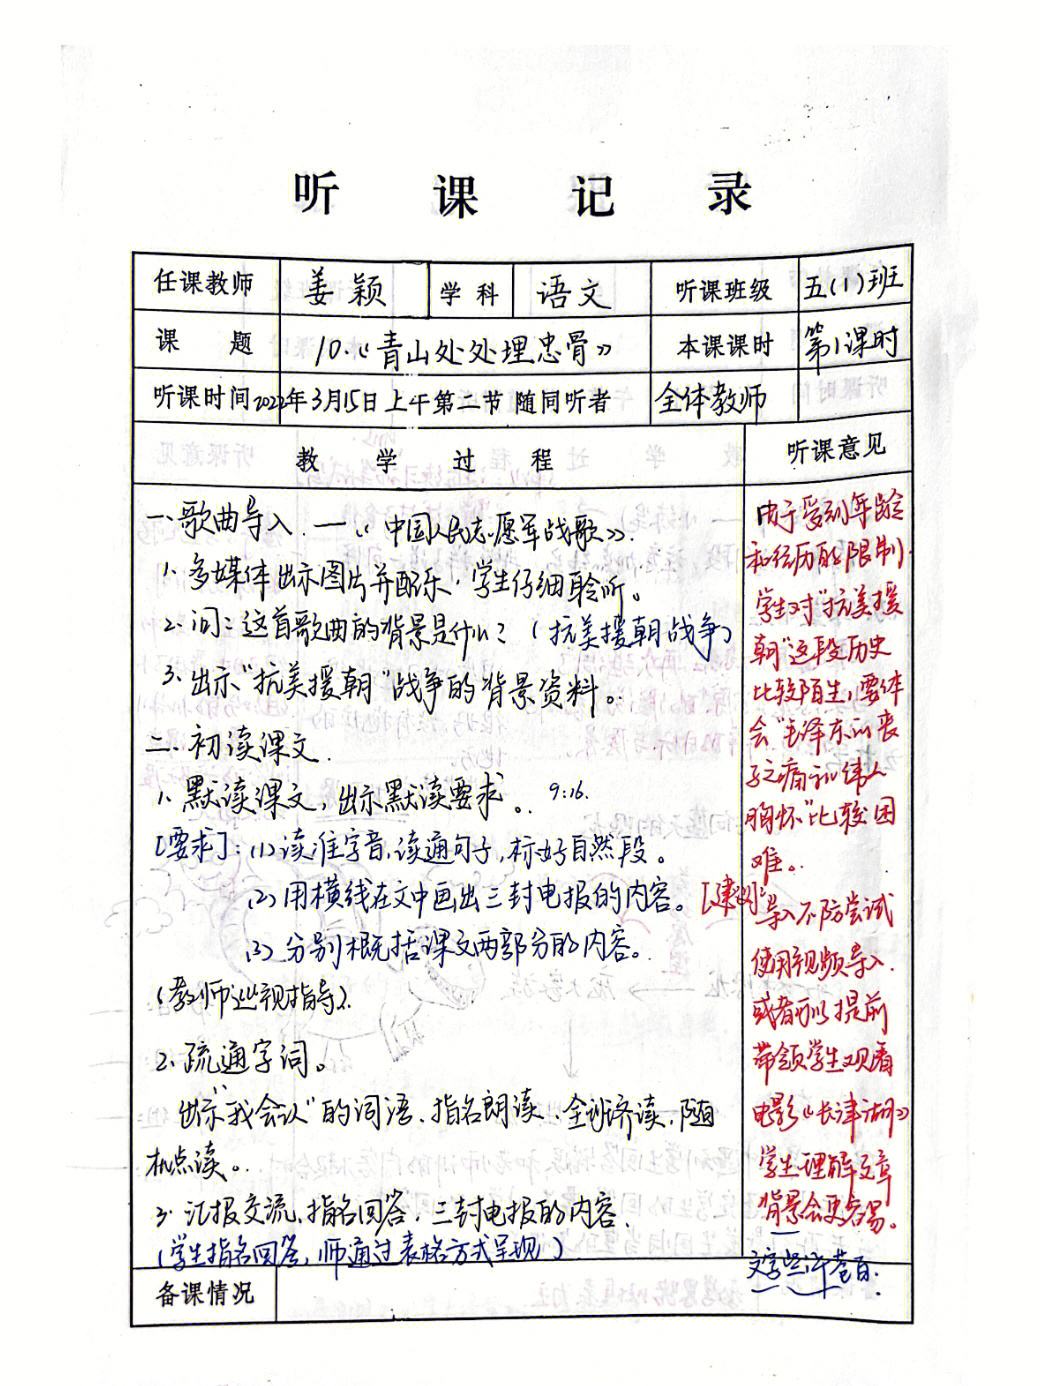 听课记录
任课教师 姜颖 学科 语文 听课班级 五(1)班
课题 10.《青山处处埋忠骨》 本课课时 第1课时
听课时间 2022年3月15日上午第二节 随同听者 全体教师
教学过程 听课意见
一、歌曲导入 —《中国人民志愿军战歌》.
1. 多媒体出示图片并配乐,学生仔细聆听。
2. 问:这首歌曲的背景是什么?(抗美援朝战争)
3. 出示"抗美援朝"战争的背景资料。
二、初读课文.
1. 默读课文,出示默读要求。 9:16.
[要求]:(1)读准字音,读通句子,标好自然段。
(2)用横线在文中画出三封电报的内容。
(3)分别概括课文两部分的内容。
(教师巡视指导).
2. 疏通字词。
出示"我会认"的词语、指名朗读、全班齐读,随
机点读。
3. 汇报交流,指名回答,三封电报的内容.
(学生指名回答,师通过表格方式呈现)
由于受到年龄
和经历的限制,
学生对"抗美援
朝"这段历史
比较陌生,要体
会"毛泽东的丧
子之痛和伟人
胸怀"比较困
难。
[建议]:导入不防尝试
使用视频导入.
或者可以提前
带领学生观看
电影《长津湖》
学生理解文章
背景会更容易。
备课情况